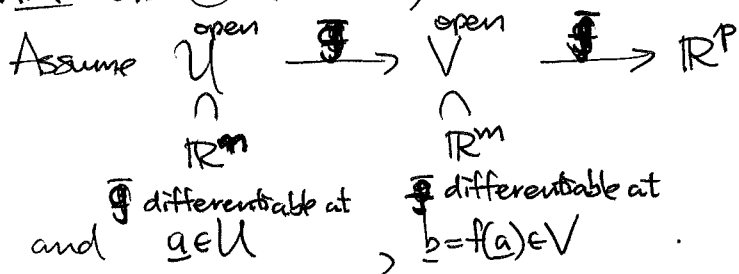 Assume U open g̅ → V open f̅ → ℝᵖ
∩ ∩
ℝⁿ ℝᵐ
g̅ differentiable at differentiable at
and a∈U , b=f(a)∈V .